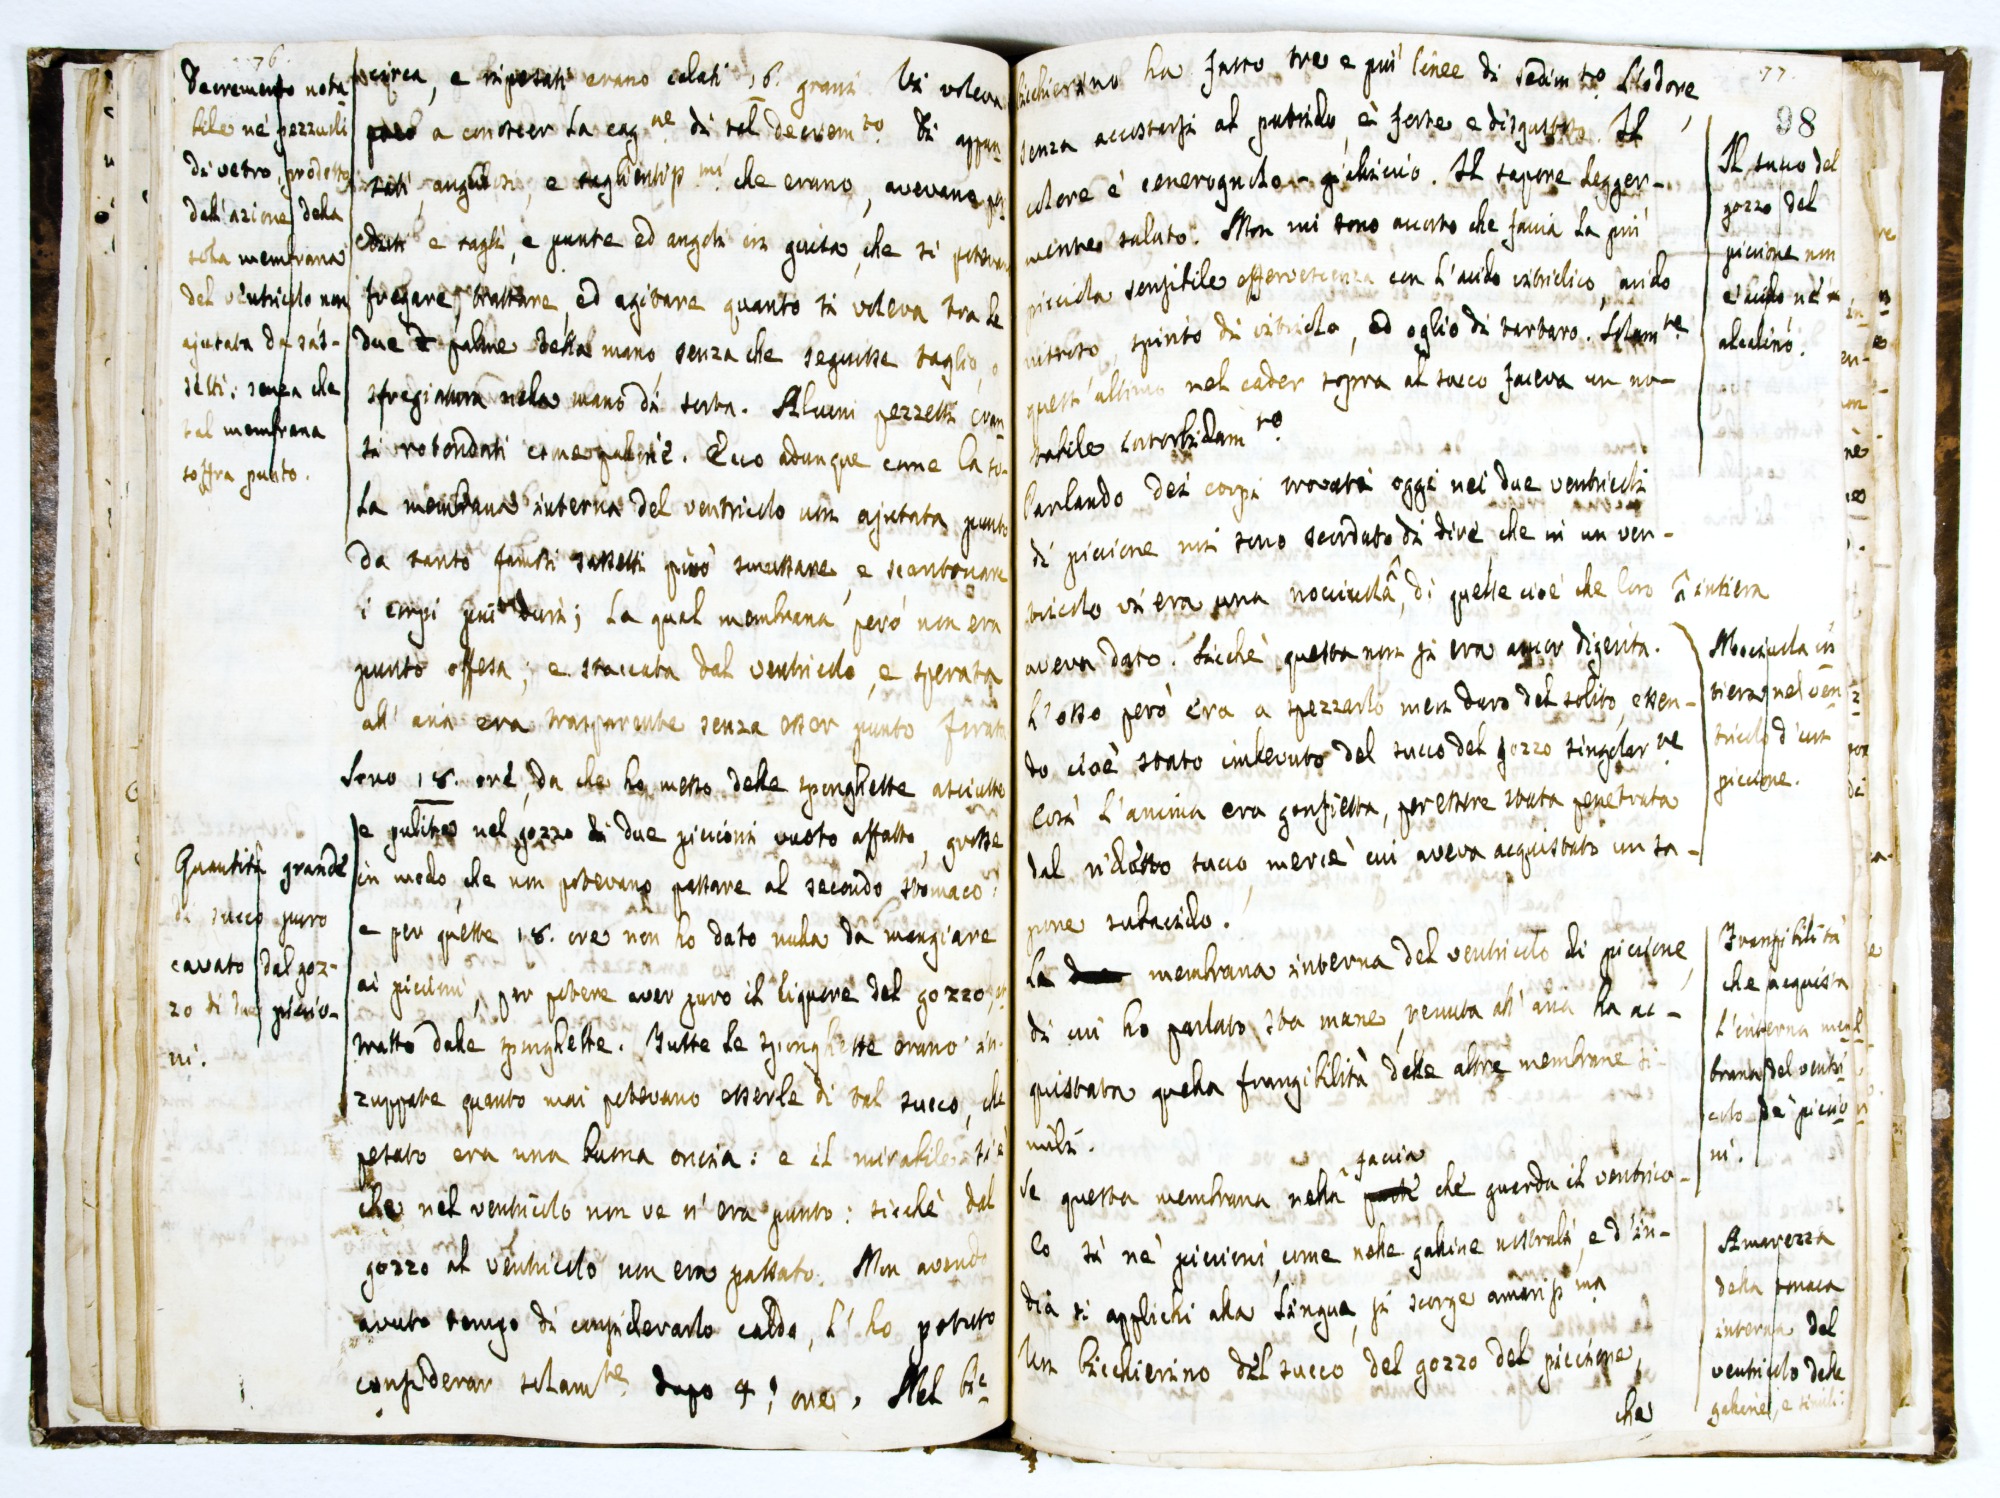 76.
Decremento nota-
bile ne' pezzuoli
di vetro prodotto
dall'azione della
sola membrana
del ventricolo non
ajutata da sas-
setti: senza che
tal membrana
soffra punto.
circa, e ripesati erano calati 16. grani. Vi voleva
poco a conoscer la cag.ne di tal decrem.to. Di appun-
tati, angolosi, e taglientiss.mi che erano, avevano per-
duti e tagli, e punte ed angoli in guisa, che si potevan
fregare, trattare, ed agitare quanto si voleva tra le
due palme della mano, senza che seguisse taglio, o
sfregiatura nella mano di sorta. Alcuni pezzetti eran-
si rotondati come palline. Ecco adunque come la so-
la membrana interna del ventricolo non ajutata punto
da tanto famosi sassetti può smussare, e scantonare
i corpi più duri; la qual membrana però non era
punto offesa; e staccata dal ventricolo, e sperata
all'aria era trasparente senza esser punto forata
Sono 18. ore, da che ho messo delle spunghette asciutte
e pulite nel gozzo di due piccioni vuoto affatto, grosse
in modo, che non potevano passare al secondo stomaco:
e per queste 18. ore non ho dato nulla da mangiare
ai piccioni, per potere aver puro il liquore del gozzo,
tratto dalle spunghette. Tutte le spunghette erano in-
zuppate quanto mai potevano esserle di tal succo, che
pesato era una buona oncia: e il mirabile si è
che nel ventricolo non ve n'era punto: sicchè dal
gozzo al ventricolo non era passato. Non avendo
avuto tempo di considerarlo caldo, l'ho potuto
considerar solam.te dopo 4. ore. Nel bic-
Quantità grande
di succo puro
cavato dal goz-
zo di due piccio-
ni.
77.
98
chierino ha fatto tre e più linee di sedim.to. L'odore,
senza accostarsi al putrido, è forte e disgustoso. Il
colore è cenerognolo-gialiccio. Il sapore legger-
mente salato. Non mi sono accorto che faccia la più
picciola sensibile effervescenza con l'acido vitriolico, acido
nitroso, spirito di vitriolo, ed oglio di tartaro. Solam.te
quest'ultimo nel cader sopra al succo faceva un no-
tabile intorbidam.to
Parlando dei corpi trovati oggi nei due ventricoli
di piccione mi sono scordato di dire che in un ven-
tricolo vi era una nocciuola^, di quelle cioè che loro ^ intiera
aveva dato. Sicchè questa non si era ancor digerita.
L'osso però era a spezzarlo men duro del solito, essen-
do cioè stato imbevuto del succo del gozzo singolar.te
Così l'anima era gonfietta, per essere stata penetrata
dal ridotto succo, mercè cui aveva acquistato un sa-
pore subacido.
La membrana interna del ventricolo di piccione,
di cui ho parlato sta mane, venuta all'aria ha ac-
quistata quella frangibilità delle altre membrane si-
mili.
Se questa membrana nella ^faccia che guarda il ventrico-
lo sì ne' piccioni, come nelle galline nostrali, e d'In-
dia si applichi alla lingua, si scorge amariss.ma
Un bicchierino del succo del gozzo del piccione,
che
Il succo del
gozzo del
piccione non
è acido nè
alcalino.
Nocciuola in-
tiera nel ven-
tricolo d'un
piccione.
Frangibilità
che acquista
l'interna mem-
brana del ventri-
colo de' piccio-
ni.
Amarezza
della tonaca
interna del
ventricolo delle
galline, e simili.